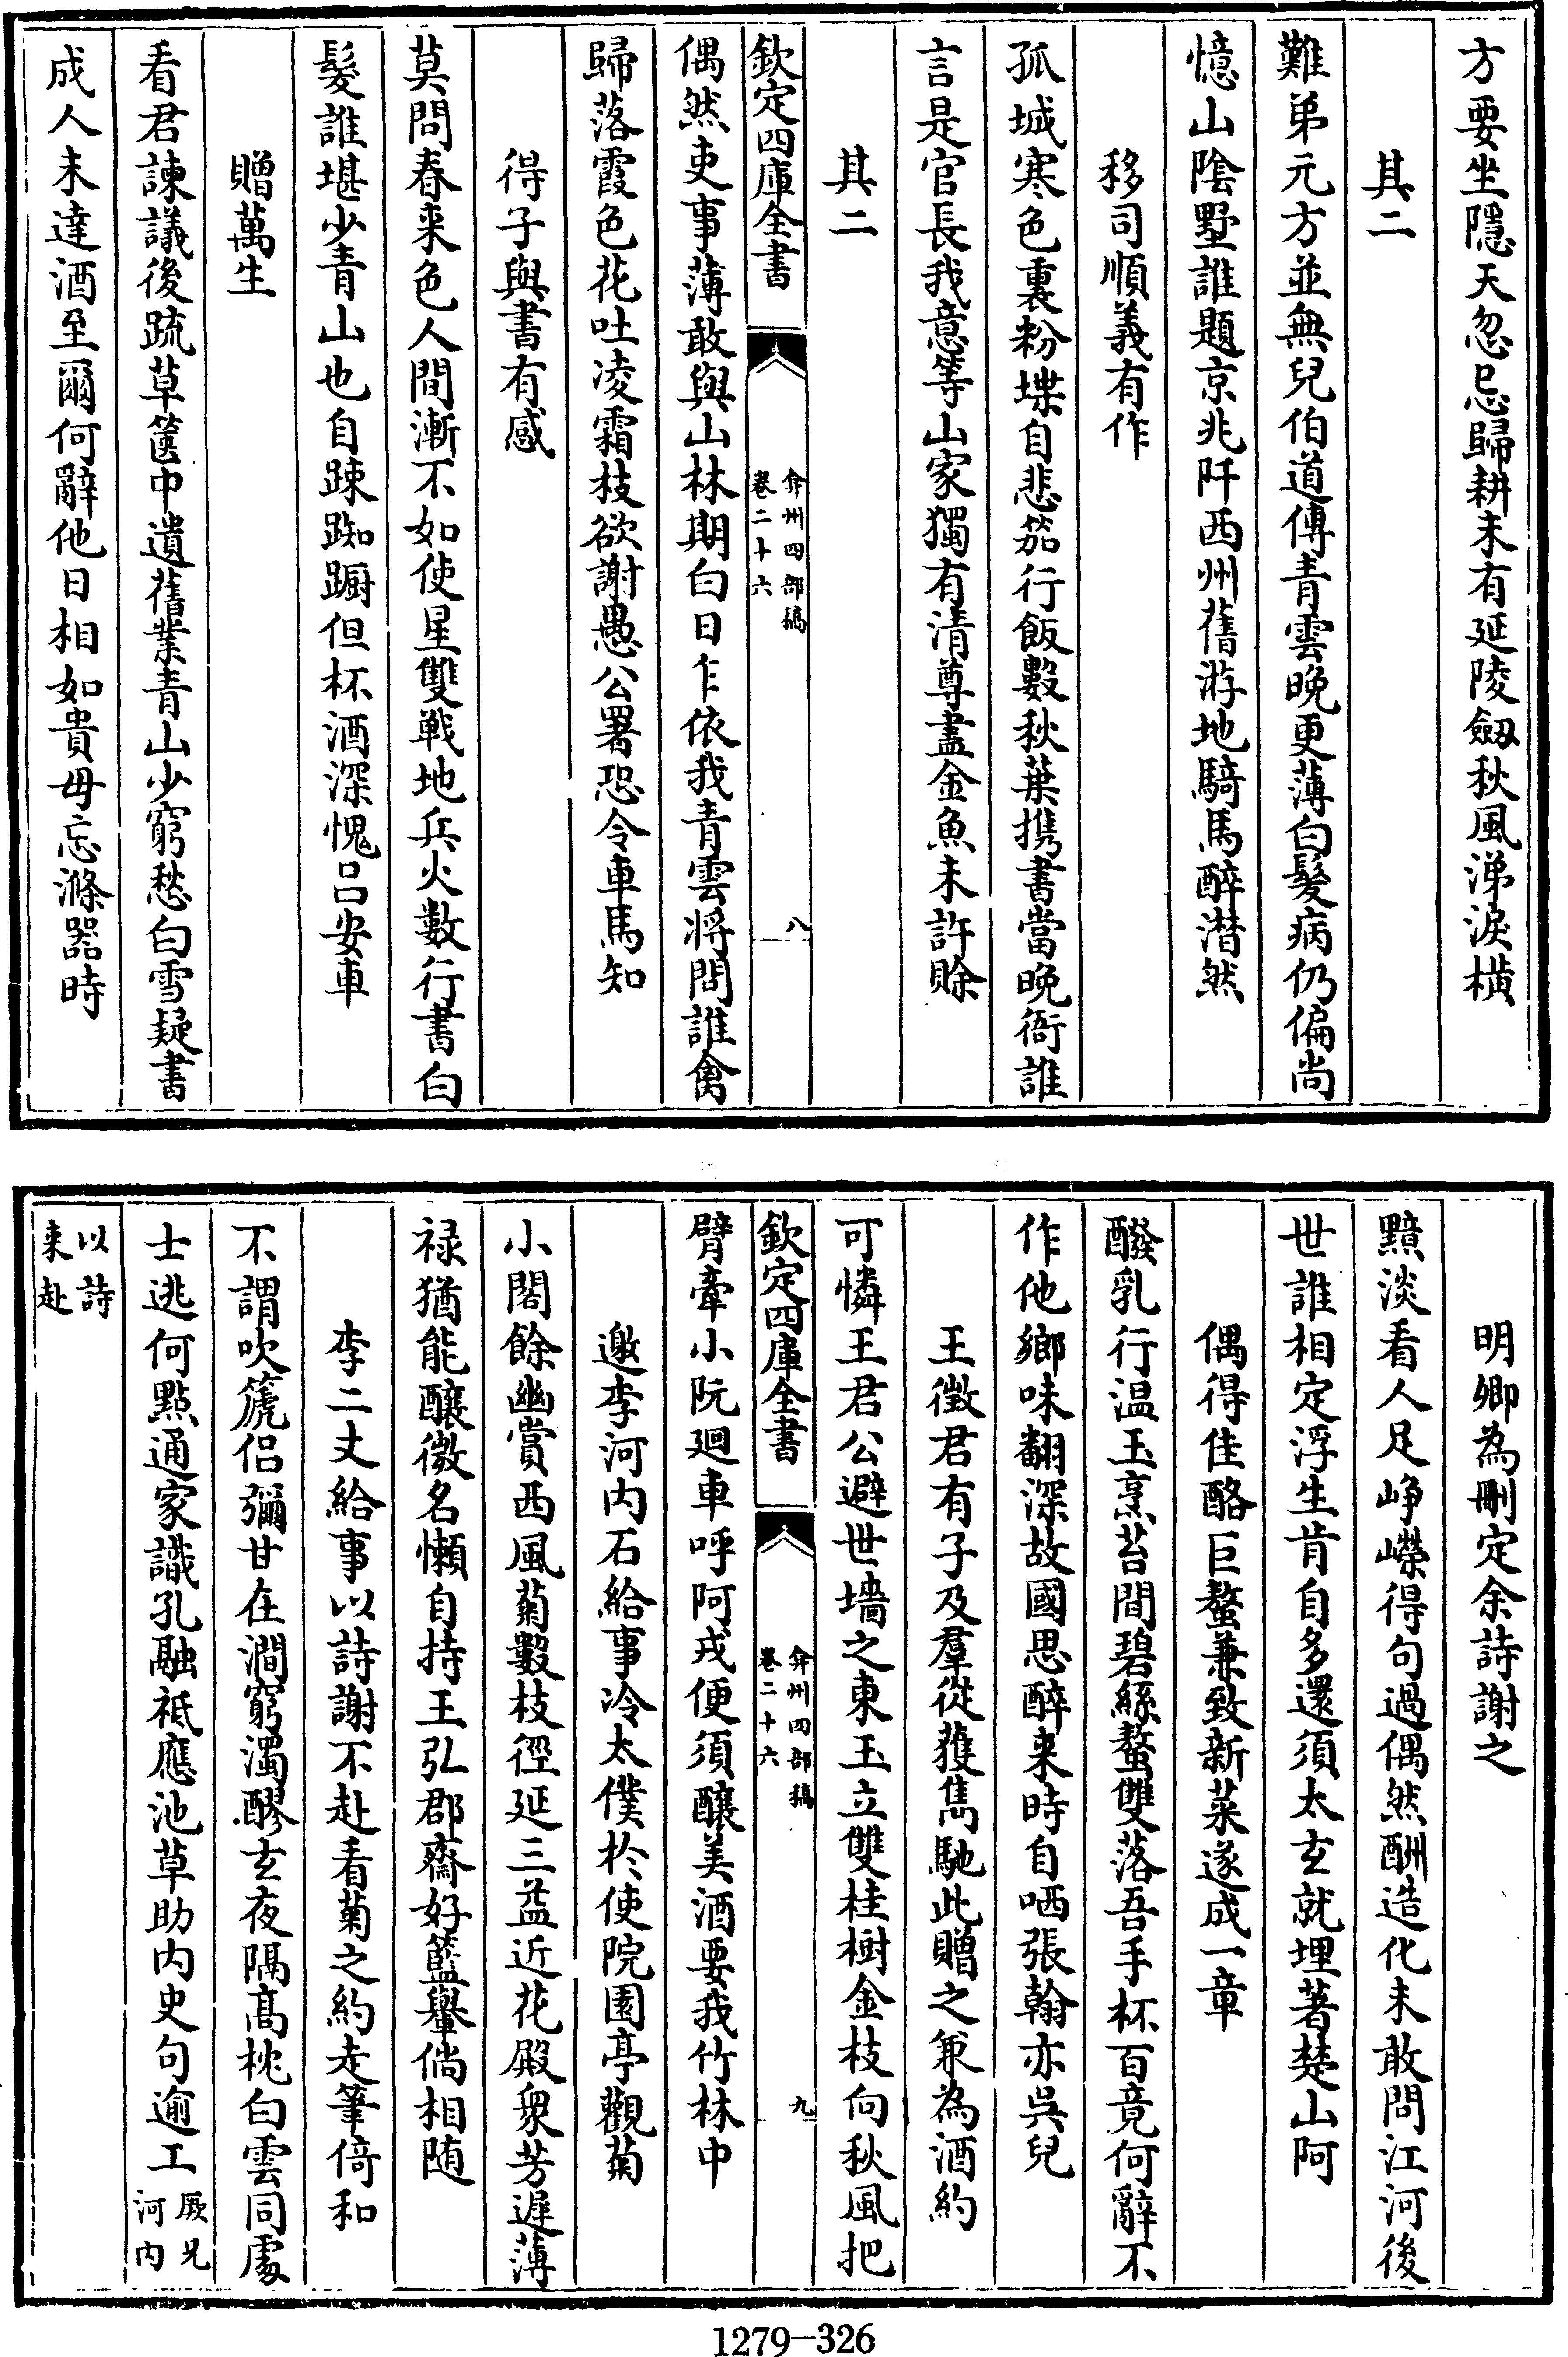 方要坐隱天忽忌歸耕未有延陵劔秋風涕淚橫
其二
難弟元方並無兒伯道傳青雲晚更薄白髮病仍偏尚
憶山陰墅誰題京兆阡西州舊游地騎馬醉潸然
移司順義有作
孤城寒色裏粉堞自悲笳行飯數秋葉攜書當晚衙誰
言是官長我意等山家獨有清尊盡金魚未許賒
其二
欽定四庫全書
弇州四部稿
卷二十六
八
偶然吏事薄敢與山林期白日乍依我青雲將問誰禽
歸落霞色花吐凌霜枝欲謝愚公署恐令車馬知
得子與書有感
莫問春来色人間漸不如使星雙戰地兵火數行書白
髮誰堪少青山也自踈踟蹰但杯酒深愧呂安車
贈萬生
看君諫議後疏草篋中遺舊業青山少窮愁白雪疑書
成人未達酒至爾何辭他日相如貴毋忘滌器時
明卿為刪定余詩謝之
黯淡看人足崢嶸得句過偶然酬造化未敢問江河後
世誰相定浮生肯自多還須太玄就埋著楚山阿
偶得佳酪巨螯兼致新菜遂成一章
醱乳行温玉烹苔間碧絲螯雙落吾手杯百竟何辭不
作他鄉味翻深故國思醉来時自哂張翰亦吳兒
王徵君有子及羣從獲雋馳此贈之兼為酒約
可憐王君公避世墻之東玉立雙桂樹金枝向秋風把
欽定四庫全書
弇州四部稿
卷二十六
九
臂牽小阮廻車呼阿戎便須釀美酒要我竹林中
邀李河内石給事冷太僕於使院園亭觀菊
小閣餘幽賞西風菊數枝徑延三益近花殿衆芳遲薄
禄猶能釀微名懶自持王弘郡齋好籃轝倘相随
李二丈給事以詩謝不赴看菊之約走筆倚和
不謂吹篪侣彌甘在澗窮濁醪玄夜隔髙枕白雲同處
士逃何點通家識孔融祗應池草助内史句逾工厥兄
河内
以詩
来赴
1279-326